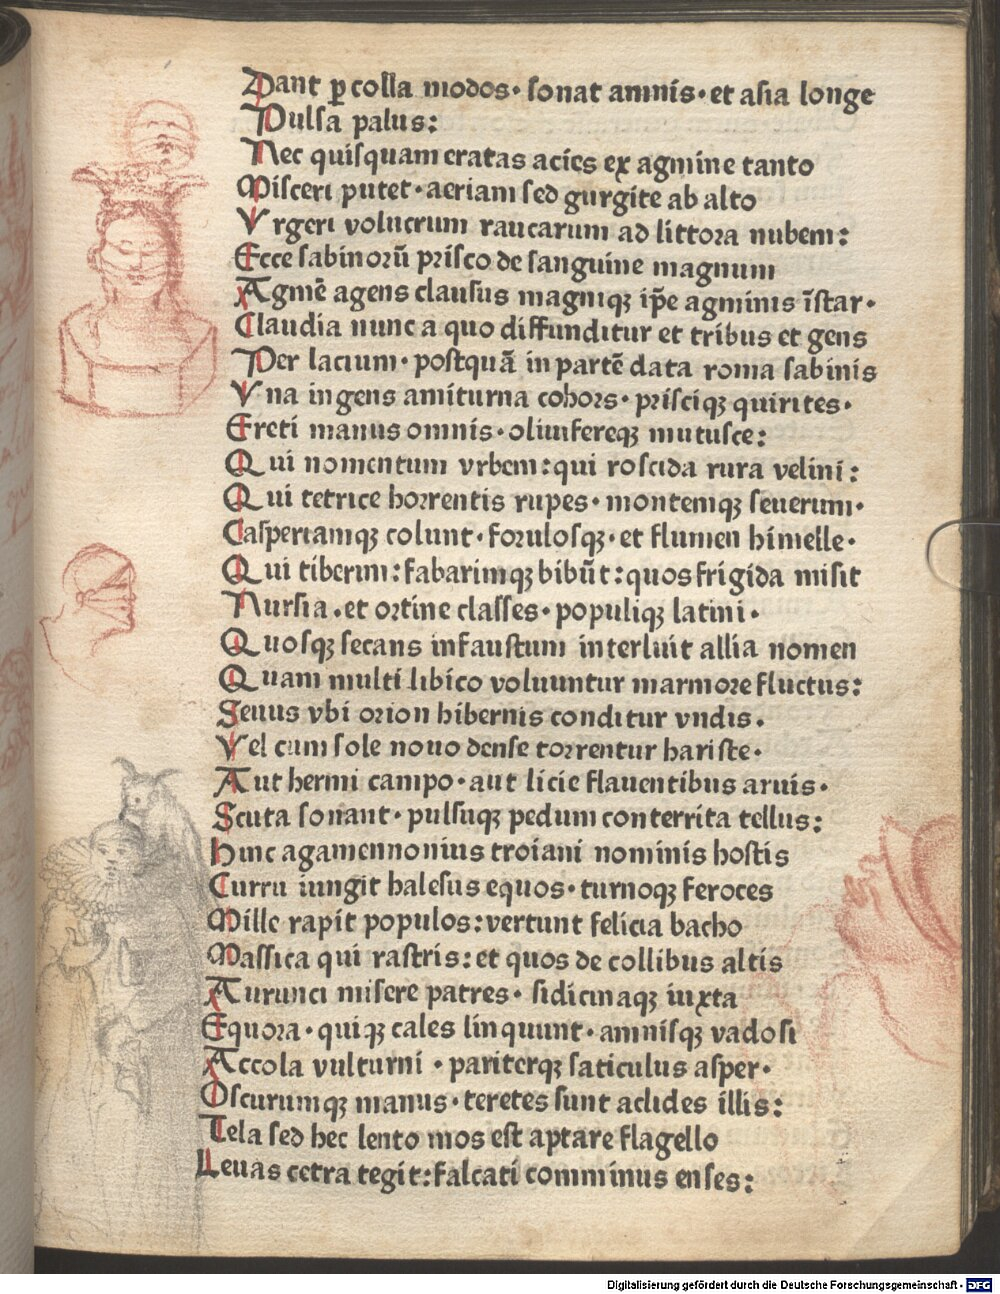 Dant ꝑ colla modos· sonat amnis· et asia longe
Pulsa palus:
Nec quisquam eratas acies ex agmine tanto
Misceri putet· aeriam sed gurgite ab alto
Urgeri volucrum raucarum ad littora nubem:
Ecce sabinorū prisco de sanguine magnum
Agmē agens clausus magniqꝫ ip̄e agminis īstar·
Claudia nunc a quo diffunditur et tribus et gens
Per lacium· postquā in partē data roma sabinis
Una ingens amiturna cohors· prisciqꝫ quirites·
Ereti manus omnis· oliuifereqꝫ mutusce:
Qui nomentum vrbem: qui roscida rura velini:
Qui tetrice horrentis rupes· montemqꝫ seuerum·
Casperiamqꝫ colunt· forulosqꝫ· et flumen himelle·
Qui tiberim: fabarimqꝫ bibūt: quos frigida misit
Nursia· et ortine classes· populiqꝫ latini·
Quosqꝫ secans infaustum interluit allia nomen
Quam multi libico voluuntur marmore fluctus:
Seuus vbi orion hibernis conditur vndis·
Vel cum sole nouo dense torrentur hariste·
Aut hermi campo· aut licie flauentibus aruis·
Scuta sonant· pulsuqꝫ pedum conterrita tellus:
Hinc agamennonius troiani nominis hostis
Curru iungit halesus equos· turnoqꝫ feroces
Mille rapit populos: vertunt felicia bacho
Massica qui rastris: et quos de collibus altis
Aurunci misere patres· sidicinaqꝫ iuxta
Equora· quiqꝫ cales linquunt· amnisqꝫ vadosi
Accola vulturni · pariterqꝫ saticulus asper·
Oscurumqꝫ manus· teretes sunt aclides illis:
Tela sed hec lento mos est aptare flagello
Leuas cetra tegit: falcati comminus enses:
Digitalisierung gefördert durch die Deutsche Forschungsgemeinschaft - DFG